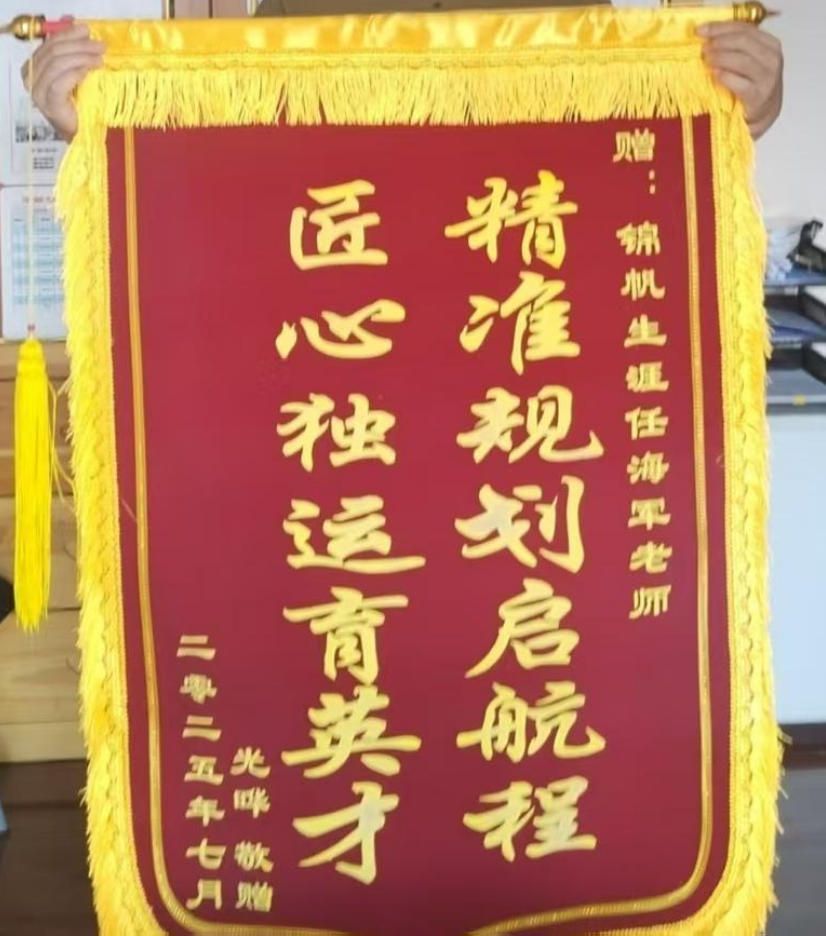 赠：锦帆生涯任海军老师
精准规划启航程
匠心独运育英才
光晔 敬赠
二零二五年七月